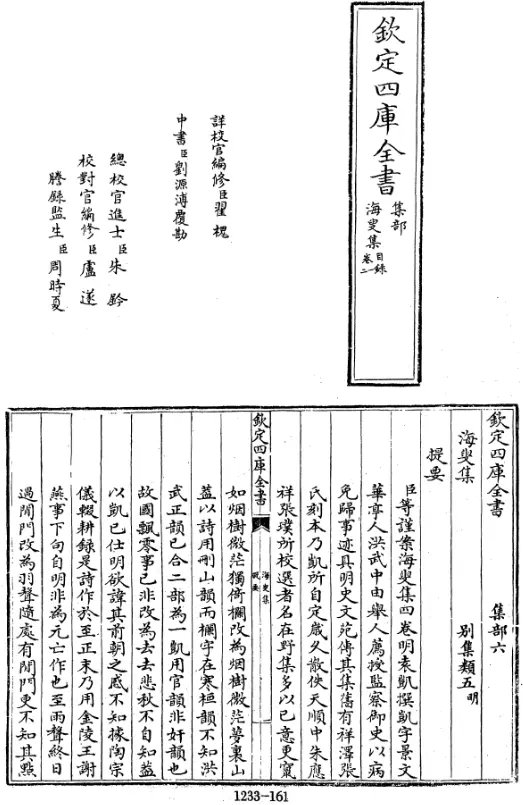 欽定四庫全書
集部
海叟集 目錄 卷一二
詳校官編修臣翟槐
中書臣劉源溥覆勘
總校官進士臣朱鈐
校對官編修臣盧遂
謄錄監生臣周時夏
欽定四庫全書 集部六
海叟集 別集類五 明
提要
臣等謹案海叟集四卷明袁凱撰凱字景文
華亭人洪武中由舉人薦授監察御史以病
免歸事迹具明史文苑傳其集舊有祥澤張
氏刻本乃凱所自定歲久散佚天順中朱應
祥張璞所校選者名在野集多以己意更竄
欽定四庫全書 海叟集 提要
如烟樹微茫獨倚欄改為烟樹微茫夢裏山
蓋以詩用刪山韻而欄字在寒桓韻不知洪
武正韻已合二部為一凱用官韻非奸韻也
故國飄零事已非改為去去悲秋不自知蓋
以凱已仕明欲諱其前朝之感不知據陶宗
儀輟耕錄是詩作於至正末乃用金陵王謝
燕事下句自明非為元亡作也至雨聲終日
過閒門改為羽聲隨處有閒門更不知其點
1233-161